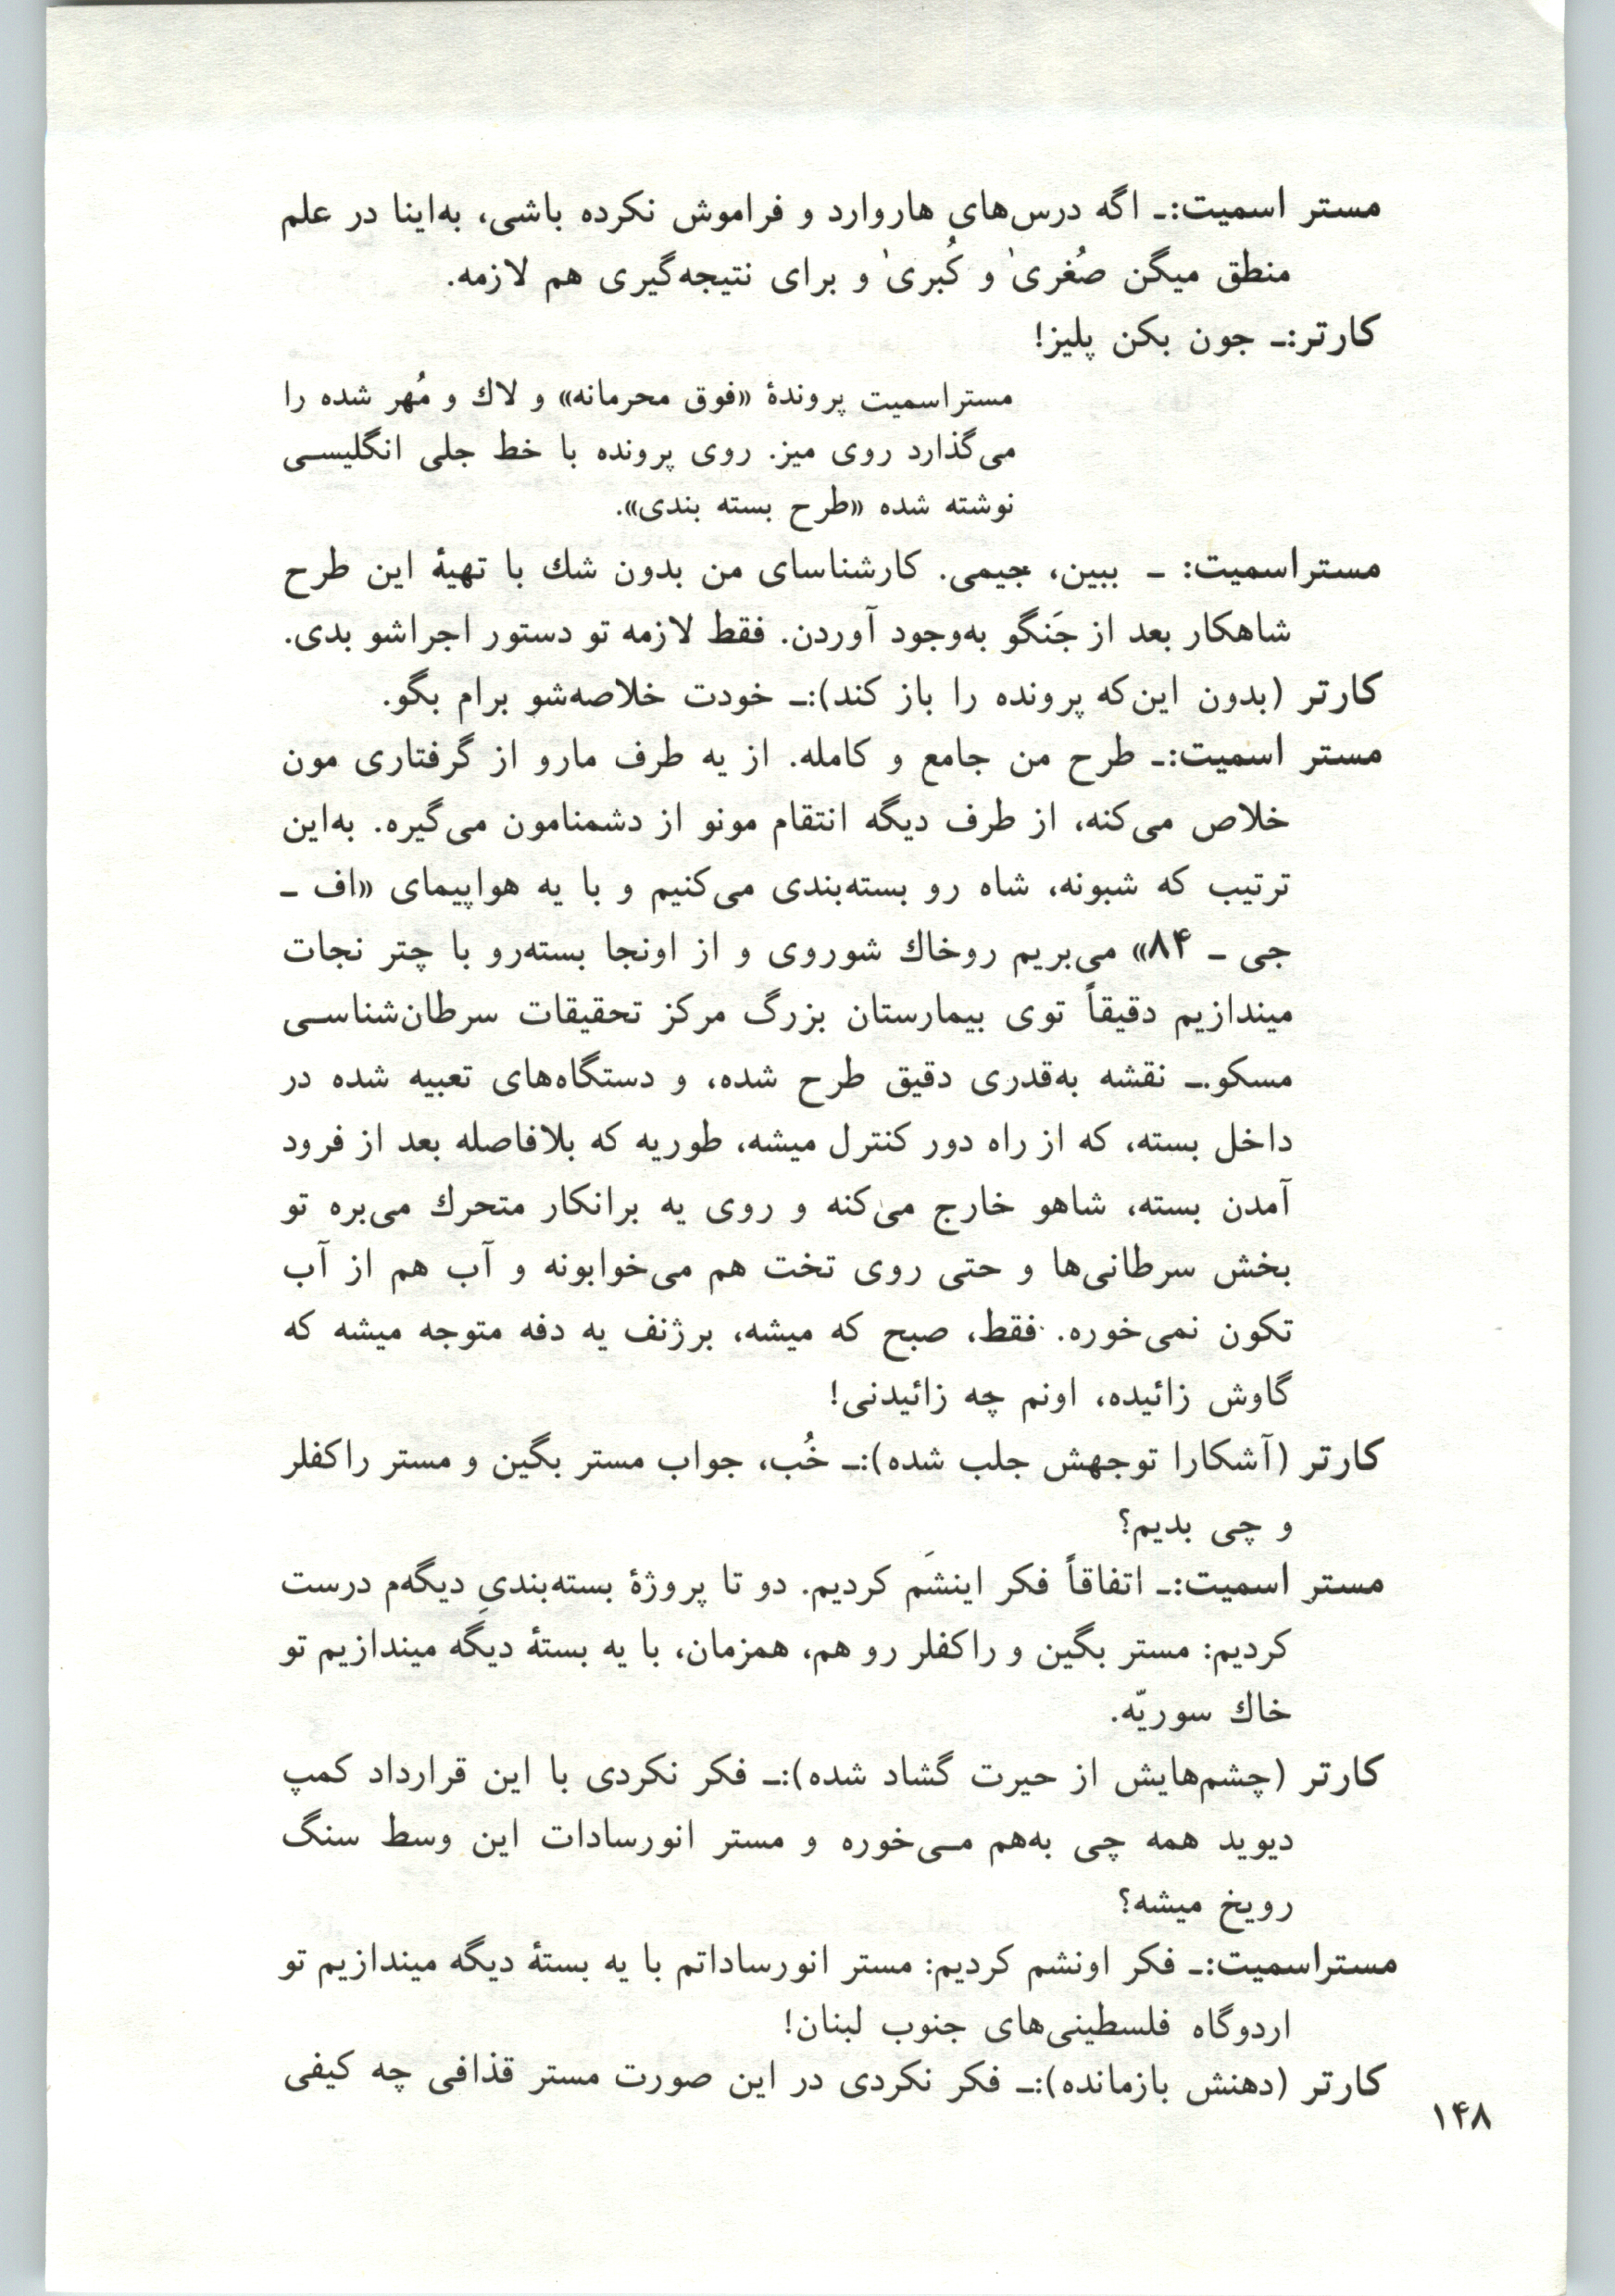 مستر اسمیت:ـ اگه درس‌های هاروارد و فراموش نکرده باشی، به‌اینا در علم
منطق میگن صُغریٰ و کُبریٰ و برای نتیجه‌گیری هم لازمه.
کارتر:ـ جون بکن پلیز!
مستراسمیت پروندهٔ «فوق محرمانه» و لاك و مُهر شده را
می‌گذارد روی میز. روی پرونده با خط جلی انگلیسی
نوشته شده «طرح بسته بندی».
مستراسمیت: ـ ببین، جیمی. کارشناسای من بدون شك با تهیهٔ این طرح
شاهکار بعد از جَنگو به‌وجود آوردن. فقط لازمه تو دستور اجراشو بدی.
کارتر (بدون این‌که پرونده را باز کند):ـ خودت خلاصه‌شو برام بگو.
مستر اسمیت:ـ طرح من جامع و کامله. از یه طرف مارو از گرفتاری مون
خلاص می‌کنه، از طرف دیگه انتقام مونو از دشمنامون می‌گیره. به‌این
ترتیب که شبونه، شاه رو بسته‌بندی می‌کنیم و با یه هواپیمای «اف ـ
جی ـ ۸۴» می‌بریم روخاك شوروی و از اونجا بسته‌رو با چتر نجات
میندازیم دقیقاً توی بیمارستان بزرگ مرکز تحقیقات سرطان‌شناسی
مسکو.ـ نقشه به‌قدری دقیق طرح شده، و دستگاه‌های تعبیه شده در
داخل بسته، که از راه دور کنترل میشه، طوریه که بلافاصله بعد از فرود
آمدن بسته، شاهو خارج می‌کنه و روی یه برانکار متحرك می‌بره تو
بخش سرطانی‌ها و حتی روی تخت هم می‌خوابونه و آب هم از آب
تکون نمی‌خوره. فقط، صبح که میشه، برژنف یه دفه متوجه میشه که
گاوش زائیده، اونم چه زائیدنی!
کارتر (آشکارا توجهش جلب شده):ـ خُب، جواب مستر بگین و مستر راکفلر
و چی بدیم؟
مستر اسمیت:ـ اتفاقاً فکر اینشَم کردیم. دو تا پروژهٔ بسته‌بندیِ دیگه‌م درست
کردیم: مستر بگین و راکفلر رو هم، همزمان، با یه بستهٔ دیگه میندازیم تو
خاك سوریّه.
کارتر (چشم‌هایش از حیرت گشاد شده):ـ فکر نکردی با این قرارداد کمپ
دیوید همه چی به‌هم می‌خوره و مستر انورسادات این وسط سنگ
رویخ میشه؟
مستراسمیت:ـ فکر اونشم کردیم: مستر انورساداتم با یه بستهٔ دیگه میندازیم تو
اردوگاه فلسطینی‌های جنوب لبنان!
کارتر (دهنش بازمانده):ـ فکر نکردی در این صورت مستر قذافی چه کیفی
۱۴۸